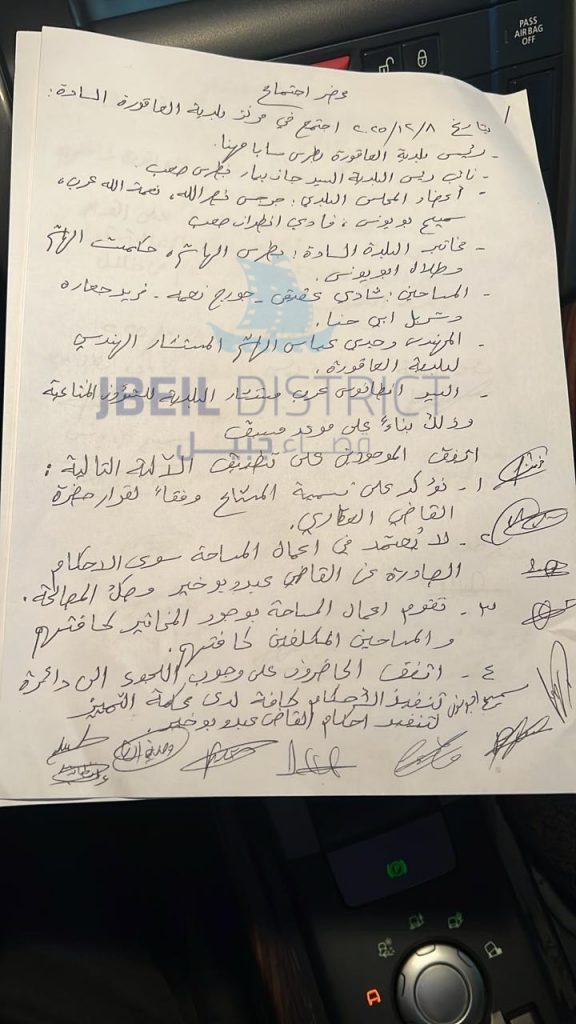 PASS
AIR BAG
OFF
محضر اجتماع
بتاريخ ٢٠٢٥/١٢/٨ اجتمع في مركز بلدية العاقورة السادة:
- رئيس بلدية العاقورة بطرس سابا مهنا.
- نائب رئيس البلدية السيد جان بيار بطرس صعب.
- أعضاء المجلس البلدي: جرجس نصرالله، نعمة الله عرب،
سميح بو يونس، فادي انطوان صعب
- مخاتير البلدة السادة: بطرس الهاشم، حكمت الهاشم
وطلال ابو يونس.
- المساحين: شادي عقيقي - جورج نعمه - فريد جعاره
وشربل ابي حنا.
- المهندس وحيد عباس الهاشم المستشار الهندسي
لبلدية العاقورة.
- السيد انطانيوس عرب مستشار البلدية للشؤون
وذلك بناءً على موعد مسبق
JBEIL DISTRICT
قضاء جبيل
اتفق الموجودين على تطبيق الآلية التالية:
١- نؤكد على تسمية المشاح وفقاً لقرار حضرة
القاضي العقاري.
٢- لا يُعتمد في اعمال المساحة سوى الاحكام
الصادرة عن القاضي عبدو بو خير وصك المصالحة.
٣- تقوم اعمال المساحة بوجود المخاتير كافتهم
والمساحين المكلفين كافتهم.
٤- اتفق الحاضرون على وجوب اللجوء الى دائرة
تنفيذ الأحكام كافة لدى محكمة التمييز
لتنفيذ احكام القاضي عبدو بو خير.